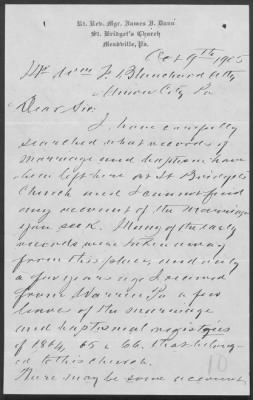 Rt. Rev. Mgr. James J. Dunn
St. Bridget's Church
Meadville, Pa.
Oct 9th 1905
Mr Wm F Blanchard Atty
Union City Pa
Dear Sir:
I have carefully
searched what records of
marriage and baptism have
been left here at St Bridget's
Church and I cannot find
any account of the marriage
you seek. Many of the early
records were taken away
from this place, and only
a few years ago I received
from Warren Pa a few
leaves of the marriage
and baptismal registries
of 1864, 65 & 66. that belong-
ed to this church.
There may be some account
10